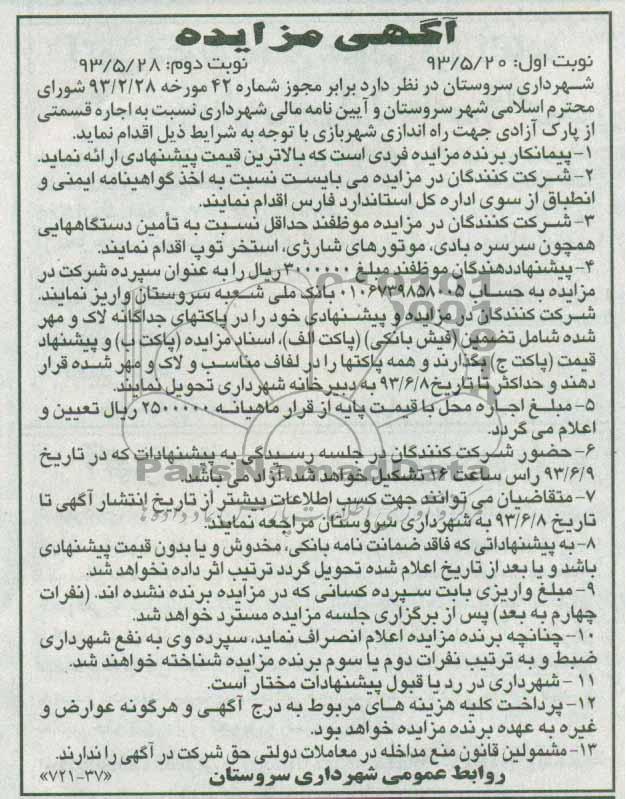 آگهی مزایده
نوبت اول: ۹۳/۵/۲۰ نوبت دوم: ۹۳/۵/۲۸
شهرداری سروستان در نظر دارد برابر مجوز شماره ۴۲ مورخه ۹۳/۲/۲۸ شورای
محترم اسلامی شهر سروستان و آیین نامه مالی شهرداری نسبت به اجاره قسمتی
از پارک آزادی جهت راه اندازی شهربازی با توجه به شرایط ذیل اقدام نماید.
۱- پیمانکار برنده مزایده فردی است که بالاترین قیمت پیشنهادی ارائه نماید.
۲- شرکت کنندگان در مزایده می بایست نسبت به اخذ گواهینامه ایمنی و
انطباق از سوی اداره کل استاندارد فارس اقدام نمایند.
۳- شرکت کنندگان در مزایده موظفند حداقل نسبت به تأمین دستگاههایی
همچون سرسره بادی، موتورهای شارژی، استخر توپ اقدام نمایند.
۴- پیشنهاددهندگان موظفند مبلغ ۳۰۰۰۰۰۰ ریال را به عنوان سپرده شرکت در
مزایده به حساب ۰۱۰۶۷۳۹۸۵۸۰۰۵ بانک ملی شعبه سروستان واریز نمایند.
شرکت کنندگان در مزایده و پیشنهادی خود را در پاکتهای جداگانه لاک و مهر
شده شامل تضمین (فیش بانکی) (پاکت الف)، اسناد مزایده (پاکت ب) و پیشنهاد
قیمت (پاکت ج) بگذارند و همه پاکتها را در لفاف مناسب و لاک و مهر شده قرار
دهند و حداکثر تا تاریخ ۹۳/۶/۸ به دبیرخانه شهرداری تحویل نمایند.
۵- مبلغ اجاره محل با قیمت پایه از قرار ماهیانه ۲۵۰۰۰۰۰ ریال تعیین و
اعلام می گردد.
۶- حضور شرکت کنندگان در جلسه رسیدگی به پیشنهادات که در تاریخ
۹۳/۶/۹ راس ساعت تشکیل خواهد شد، آزاد می باشد.
ParsNamadData
۷- متقاضیان می توانند جهت کسب اطلاعات بیشتر از تاریخ انتشار آگهی تا
تاریخ ۹۳/۶/۸ به شهرداری سروستان مراجعه نمایند.
۸- به پیشنهاداتی که فاقد ضمانت نامه بانکی، مخدوش و یا بدون قیمت پیشنهادی
باشد و یا بعد از تاریخ اعلام شده تحویل گردد ترتیب اثر داده نخواهد شد.
۹- مبلغ واریزی بابت سپرده کسانی که در مزایده برنده نشده اند، (نفرات
چهارم به بعد) پس از برگزاری جلسه مزایده مسترد خواهد شد.
۱۰- چنانچه برنده مزایده اعلام انصراف نماید، سپرده وی به نفع شهرداری
ضبط و به ترتیب نفرات دوم یا سوم برنده مزایده شناخته خواهند شد.
۱۱- شهرداری در رد یا قبول پیشنهادات مختار است.
۱۲- پرداخت کلیه هزینه های مربوط به درج آگهی و هرگونه عوارض و
غیره به عهده برنده مزایده خواهد بود.
۱۳- مشمولین قانون منع مداخله در معاملات دولتی حق شرکت در آگهی را ندارند.
روابط عمومی شهرداری سروستان «۷۲۱-۳۷»